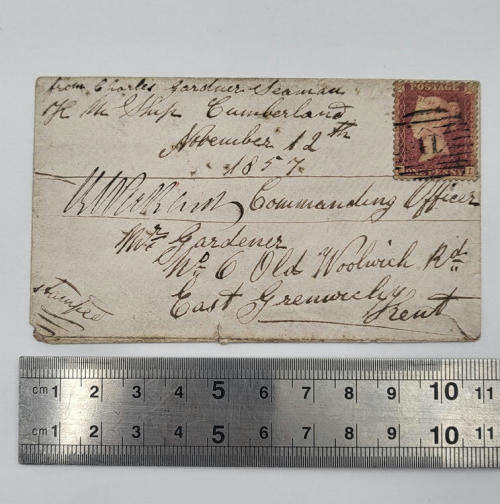 from Charles Gardner Seaman
H M Ship Cumberland
November 12th
1857
POSTAGE
11
Commanding Officer
Mr Gardener
No 6 Old Woolwich Rd
East Greenwich
Kent
stamped
cm 1 2 3 4 5 6 7 8 9 10 11
cm 1 2 3 4 5 6 7 8 9 10 11